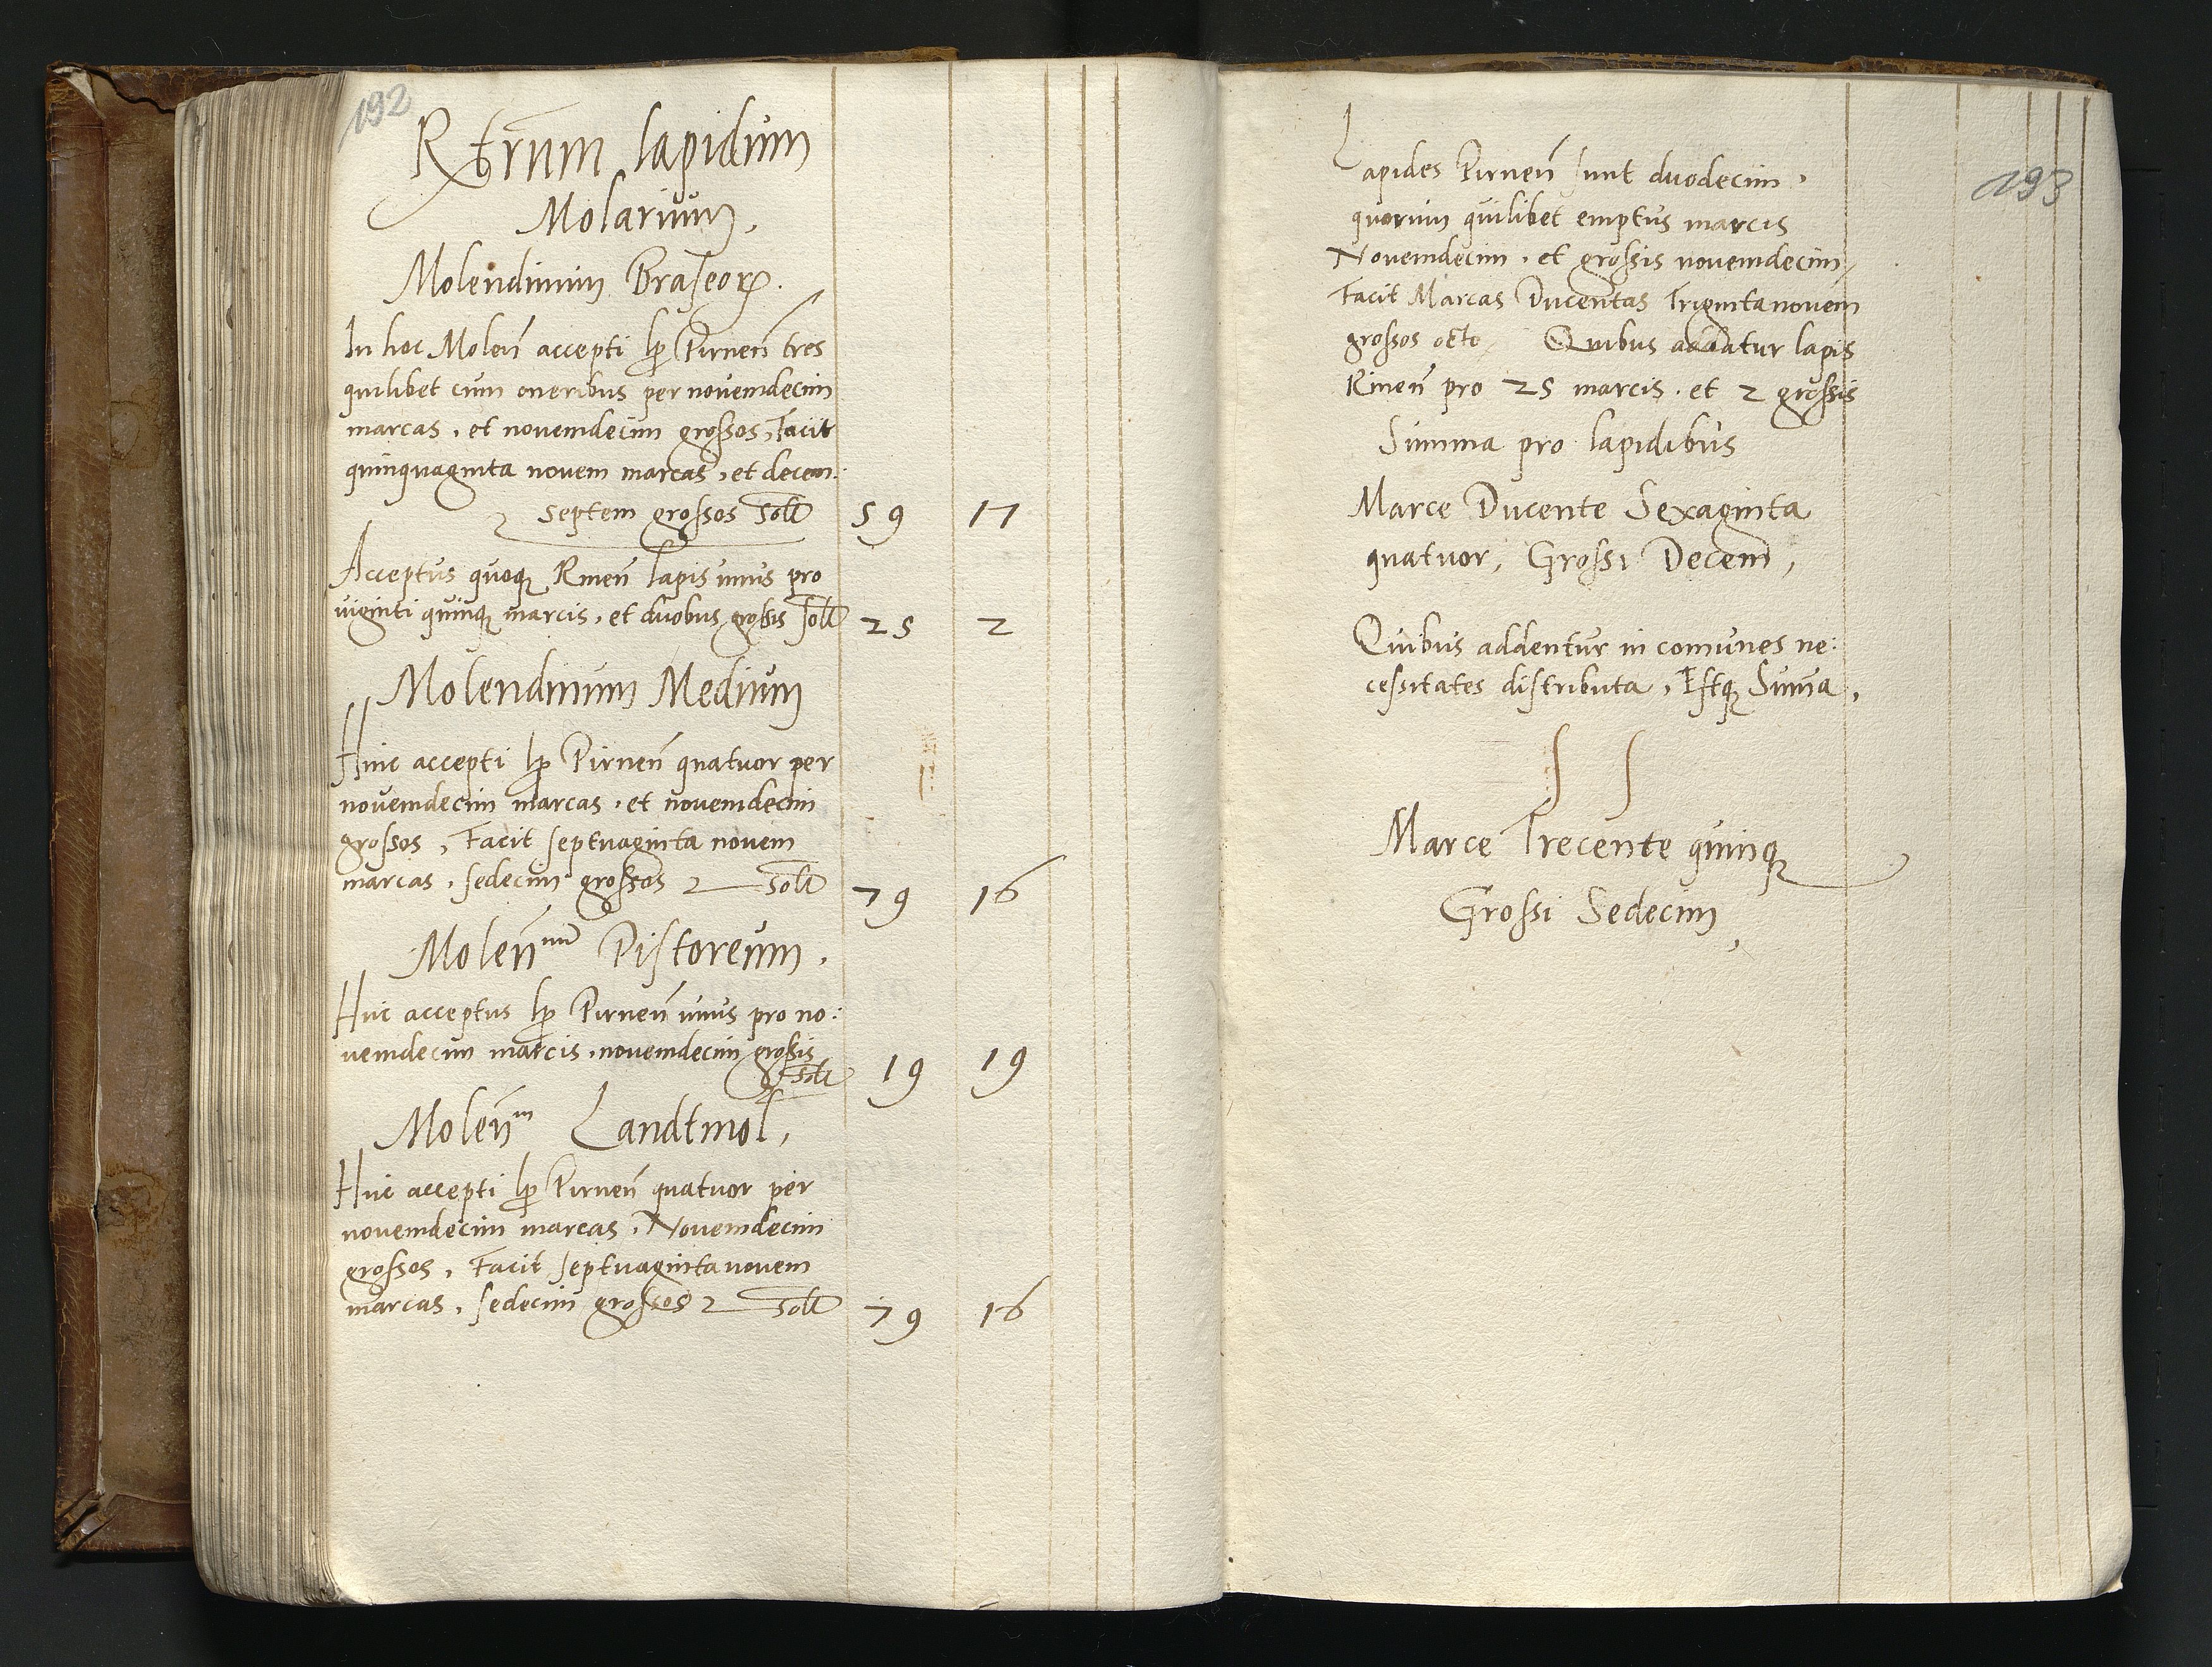 192
Rxtrum lapidum
Molarium,
Molendinum Braseorꝝ.
In hoc Moleñ accepti lp̱ Pirneñ tres
quilibet cum oneribus per novemdecim
marcas, et novemdecim grossos, Facit
quinquaginta novem marcas, et decem:
septem grossos solt 59 17
Acceptus quoqꝫ Rineñ lapis unus pro
viginti quinqꝫ marcis, et duobus grossis solt 25 2
Molendinum Medium
Huic accepti lp̱ Pirneñ quatuor per
novemdecim marcas, et novemdecim
grossos, Facit septuaginta novem
marcas, sedecim grossos solt 79 16
Moleñnum Pistoreum,
Huc acceptus lp̱ Pirneñ unus pro no:
vemdecim marcis, novemdecim grossis
solt 19 19
Moleñm Landtmol,
Huic accepti lp̱ Pirneñ quatuor per
novemdecim marcas, Novemdecim
grossos, Facit septuaginta novem
marcas, sedecim grossos solt 79 16
193
Lapides Pirneñ sunt duodecim,
quorum quilibet emptus marcis
Novemdecim, et grossis novemdecim,
Facit Marcas Ducentas Triginta novem
grossos octo, Quibus addatur lapis
Rineñ pro 25 marcis, et 2 grossis
Summa pro lapidibus
Marce Ducente Sexaginta
quatuor, Grossi Decem,
Quibus addentur in comunes ne:
cessitates distributa, Estqꝫ Sum̃a,
Marce Trecente quinqꝫ
Grossi Sedecim,